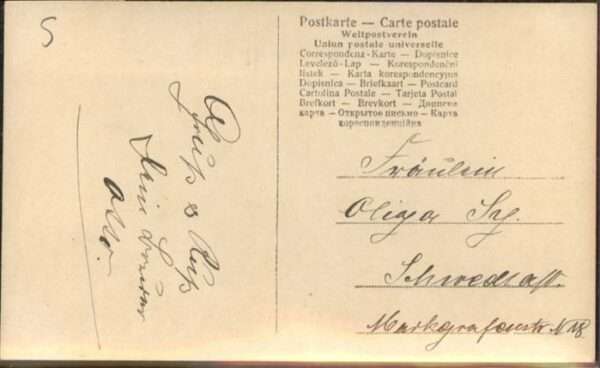 5
Gruß & Kuß
Dein
Otto.
Postkarte — Carte postale
Weltpostverein
Union postale universelle
Correspondenz-Karte — Dopisnice
Levelező-Lap — Korespondenční
lístek — Karta korespondencyjna
Dopisnica — Briefkaart — Postcard
Cartolina Postale — Tarjeta Postal
Brefkort — Brevkort — Дописна
карта — Открытое письмо — Карта
кореспонденційна
Fräulein
Schwedt a/O.
Markgrafenstr. N 18